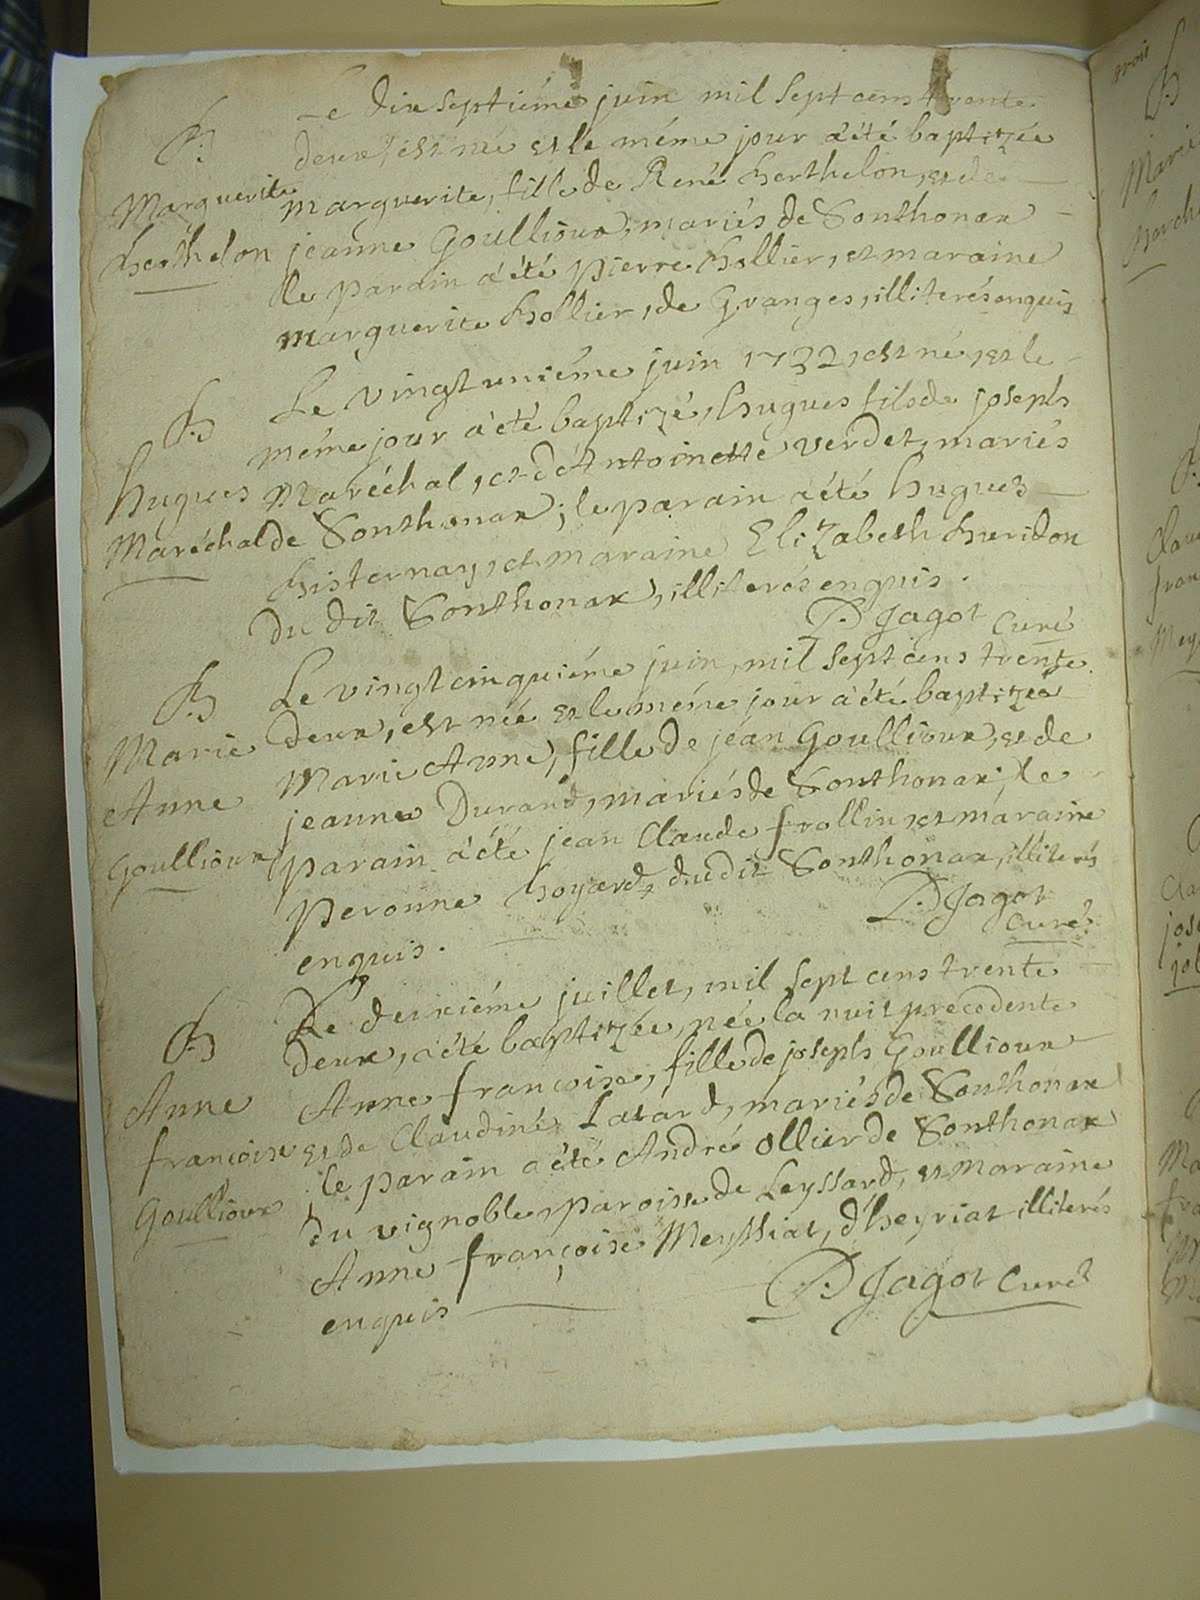 Le dix septiéme juin mil sept cens trente
deux, est née et le même jour a été baptizée
B.
Marguerite
Berthelon
Marguerite, fille de René Berthelon, et de
jeanne Goullioux, mariés de Sonthonax
le parain a été pierre hollier, et maraine
marguerite hollier, de Granges, illiterés enquis
B
hugues
Maréchal
Le vingt unième juin 1732, est né, et le
même jour a été baptizé, hugues fils de joseph
Maréchal, et d'Antoinette verdet, mariés
de Sonthonax; le parain a été hugues
Bisternay, et maraine Elizabeth huridon
du dit Sonthonax, illiterés enquis.
P. Jagot curé
B
Marie
Anne
Goullioux
Le vingt cinquiéme juin, mil sept cens trente
deux, est née et le même jour a été baptizée
Marie Anne, fille de jean Goullioux, et de
jeanne Durand, mariés de Sonthonax; le
parain a été jean Claude frollin, et maraine
Peronne Boyard, dudit Sonthonax, illiterés
enquis.
P. Jagot
Curé
B
Anne
françoise
Goullioux
Le deuxiéme juillet, mil sept cens trente
deux, a été baptizée, née la nuit precedente
Anne françoise, fille de joseph Goullioux
et de Claudine Latard, mariés de Sonthonax
le parain a été André ollier de Sonthonax
du vignoble, paroisse de Leyssard, et maraine
Anne françoise Meyssiat, d'heyriat illiterés
enquis
P. Jagot Curé